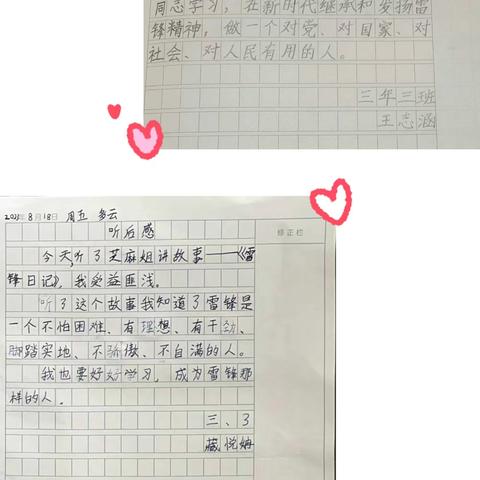 同志学习，在新时代继承和发扬雷
锋精神，做一个对党、对国家、对
社会、对人民有用的人。
三年三班
王志涵
2023年8月18日 周五 多云
修正栏
听后感
今天，听了芝麻姐讲故事——《雷
锋日记》，我受益匪浅。
听了这个故事我知道了雷锋是
一个不怕困难、有理想、有干劲、
脚踏实地、不骄傲、不自满的人。
我也要好好学习，成为雷锋那
样的人。
三、3
藏悦